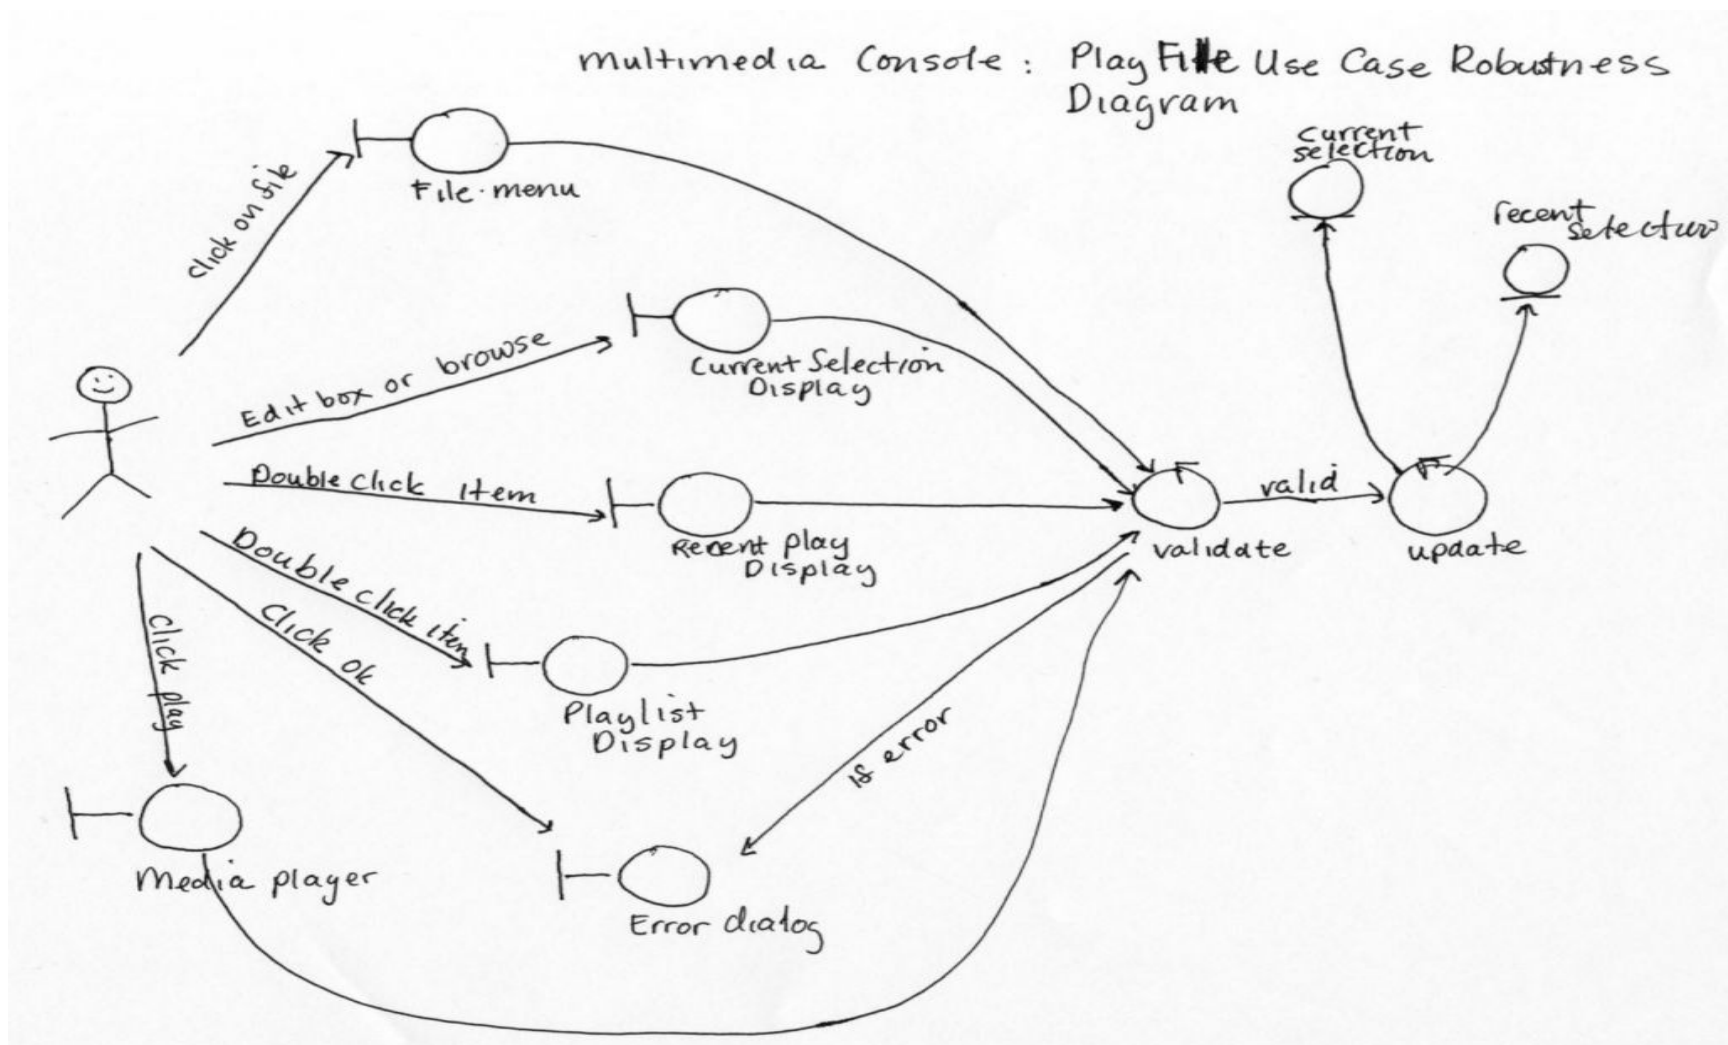 Multimedia Console: Play File Use Case Robustness
Diagram
current
selection
recent
selection
click on file
File menu
Edit box or browse
Current Selection
Display
Double click item
Recent play
Display
valid
validate
update
Double click item
Click ok
click play
Playlist
Display
If error
Media player
Error dialog